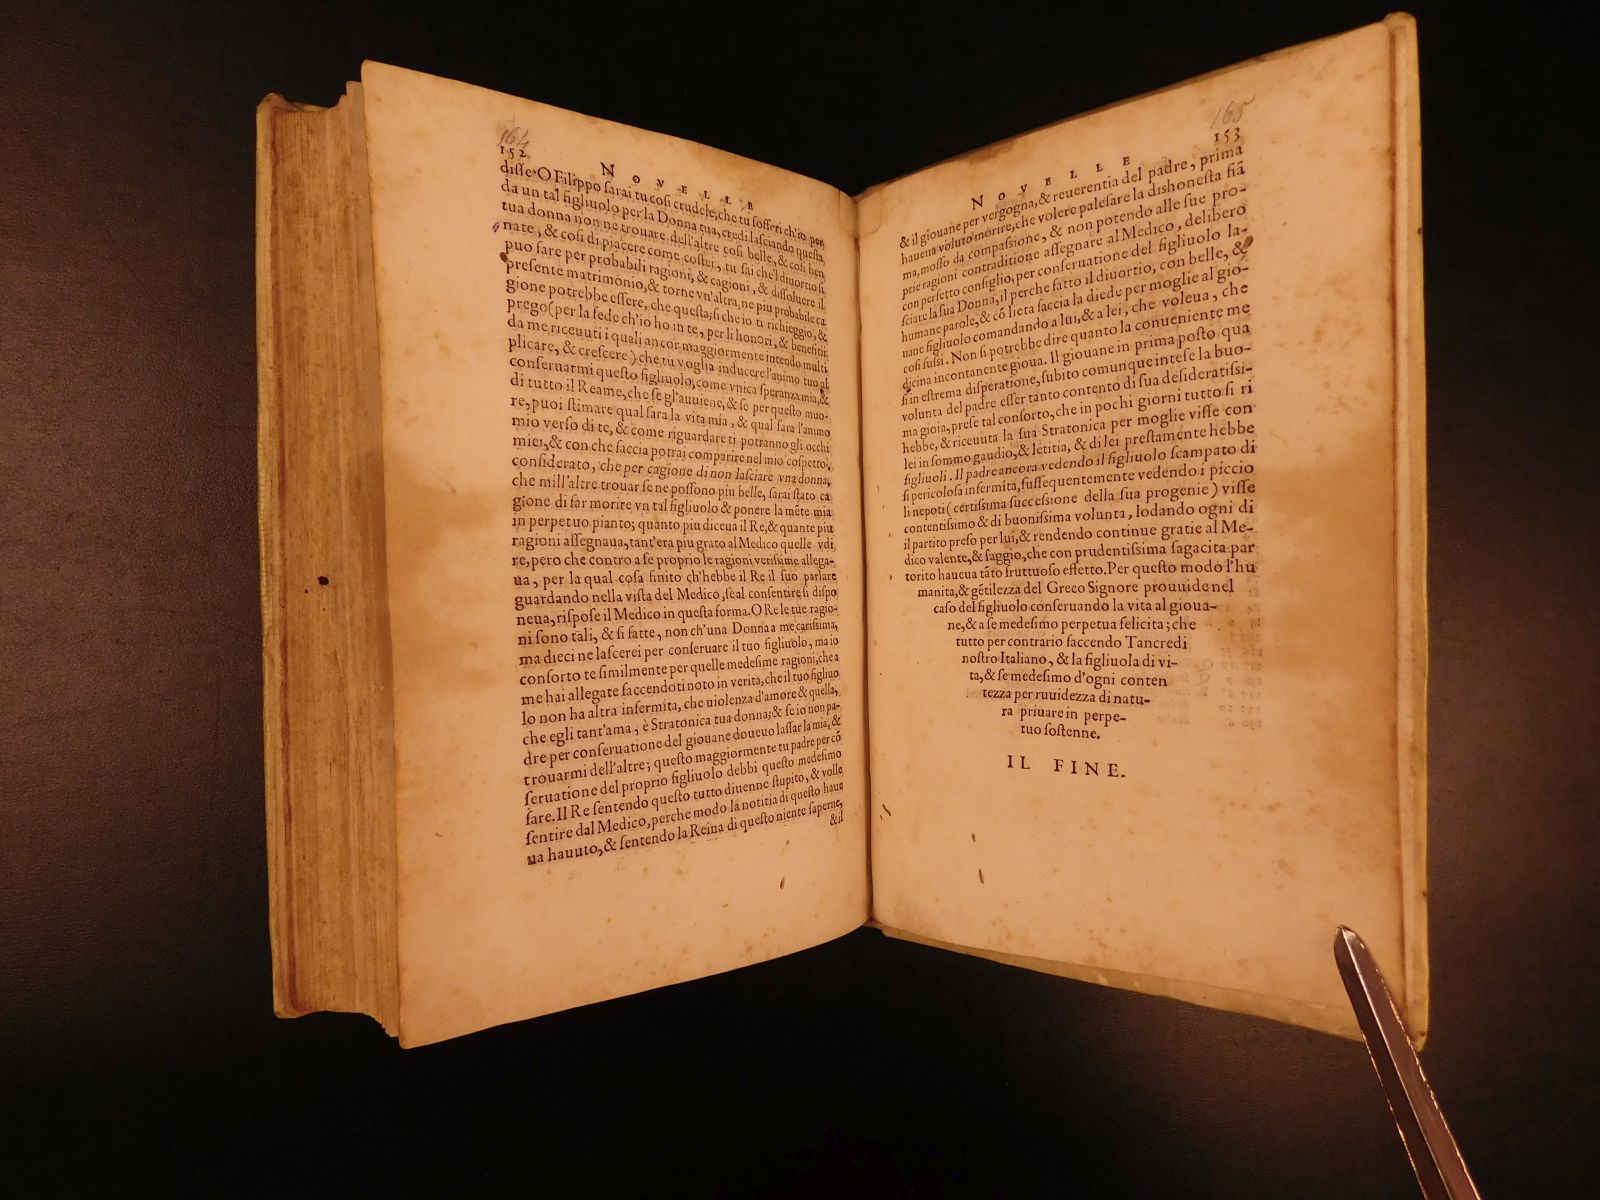 164
152
NOVELLE
disse. O Filippo sarai tu cosi crudele, che tu sofferi ch'io per
da un tal figliuolo per la Donna tua, credi lasciando questa
tua donna non ne trouare dell'altre cosi belle, & cosi ben
nate, & cosi di piacere come costei, tu sai che'l diuortio si
puo fare per probabili ragioni, & cagioni, & dissoluere il
presente matrimonio, & torne vn'altra, ne piu probabile ca
gione potrebbe essere, che questa; si che io ti richieggio, &
prego (per la fede ch'io ho in te, per li honori, & benefitii
da me riceuuti i quali ancor maggiormente intendo multi
plicare, & crescere) che tu voglia inducere l'animo tuo al
conseruarmi questo figliuolo, come vnica speranza mia, &
di tutto il Reame, che se gl'auuiene, & se per questo muo-
re, puoi stimare qual sara la vita mia, & qual sara l'animo
mio verso di te, & come riguardare ti potranno gli occhi
miei, & con che faccia potrai comparire nel mio cospetto,
considerato, che per cagione di non lasciare vna donna,
che mill'altre trouar se ne possono piu belle, sarai stato ca
gione di far morire vn tal figliuolo & ponere la mēte mia
in perpetuo pianto; quanto piu diceua il Re, & quante piu
ragioni assegnaua, tant'era piu grato al Medico quelle vdi
re, pero che contro a se proprio le ragioni verissime allega-
ua, per la qual cosa finito ch'hebbe il Re il suo parlare
guardando nella vista del Medico, se al consentire si dispo
neua, rispose il Medico in questa forma. O Re le tue ragio-
ni sono tali, & si fatte, non ch'una Donna a me carissima,
ma dieci ne lascerei per conseruare il tuo figliuolo, ma io
conforto te similmente per quelle medesime ragioni, che a
me hai allegate faccendoti noto in verita, che il tuo figliuo
lo non ha altra infermita, che uiolenza d'amore & quella,
che egli tant'ama, è Stratonica tua donna; & se io non pa-
dre per conseruatione del giouane doueuo lassar la mia, &
trouarmi dell'altre; questo maggiormente tu padre per cō
seruatione del proprio figliuolo debbi questo medesimo
fare. Il Re sentendo questo tutto diuenne stupito, & volle
sentire dal Medico, perche modo la notitia di questo haue
ua hauuto, & sentendo la Reina di questo niente saperne,
& il
165
153
NOVELLE
& il giouane per vergogna, & reuerentia del padre, prima
haueua voluto morire, che volere palesare la dishonesta fiā
ma, mosso da compassione, & non potendo alle sue pro-
prie ragioni contraditione assegnare al Medico, delibero
con perfetto consiglio, per conseruatione del figliuolo la-
sciare la sua Donna, il perche fatto il diuortio, con belle, &
humane parole, & cō lieta faccia la diede per moglie al gio-
uane figliuolo comandando a lui, & a lei, che voleua, che
cosi fussi. Non si potrebbe dire quanto la conueniente me
dicina incontanente gioua. Il giouane in prima posto qua
si in estrema disperatione, subito comunque intese la buo-
volunta del padre esser tanto contento di sua desideratissi-
ma gioia, prese tal conforto, che in pochi giorni tutto si ri
hebbe, & riceuuta la sua Stratonica per moglie visse con
lei in sommo gaudio, & letitia, & di lei prestamente hebbe
figliuoli. Il padre ancora vedendo il figliuolo scampato di
si pericolosa infermita, sussequentemente vedendo i piccio
li nepoti (certissima successione della sua progenie) visse
contentissimo & di buonissima volunta, lodando ogni di
il partito preso per lui, & rendendo continue gratie al Me-
dico valente, & saggio, che con prudentissima sagacita par
torito haueua tāto fruttuoso effetto. Per questo modo l'hu
manita, & gētilezza del Greco Signore prouuide nel
caso del figliuolo conseruando la vita al gioua-
ne, & a se medesimo perpetua felicita; che
tutto per contrario faccendo Tancredi
nostro Italiano, & la figliuola di vi-
ta, & se medesimo d'ogni conten
tezza per ruuidezza di natu-
ra priuare in perpe-
tuo sostenne.
IL FINE.